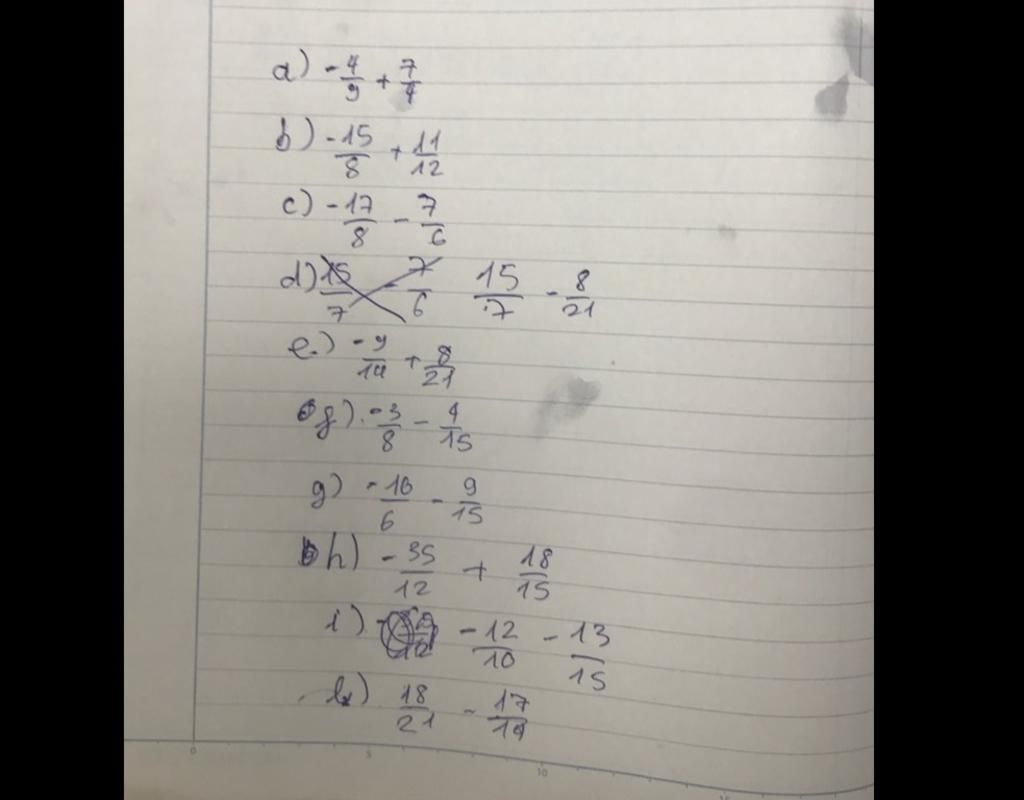 a) -4/9 + 7/4
b) -15/8 + 11/12
c) -17/8 - 7/6
d) 15/7 - 7/6 15/7 - 8/21
e) -9/14 + 8/21
f) -3/8 - 4/15
g) -16/6 - 9/15
h) -35/12 + 18/15
i) -12/10 - 13/15
18/21 - 17/14
0 5 10